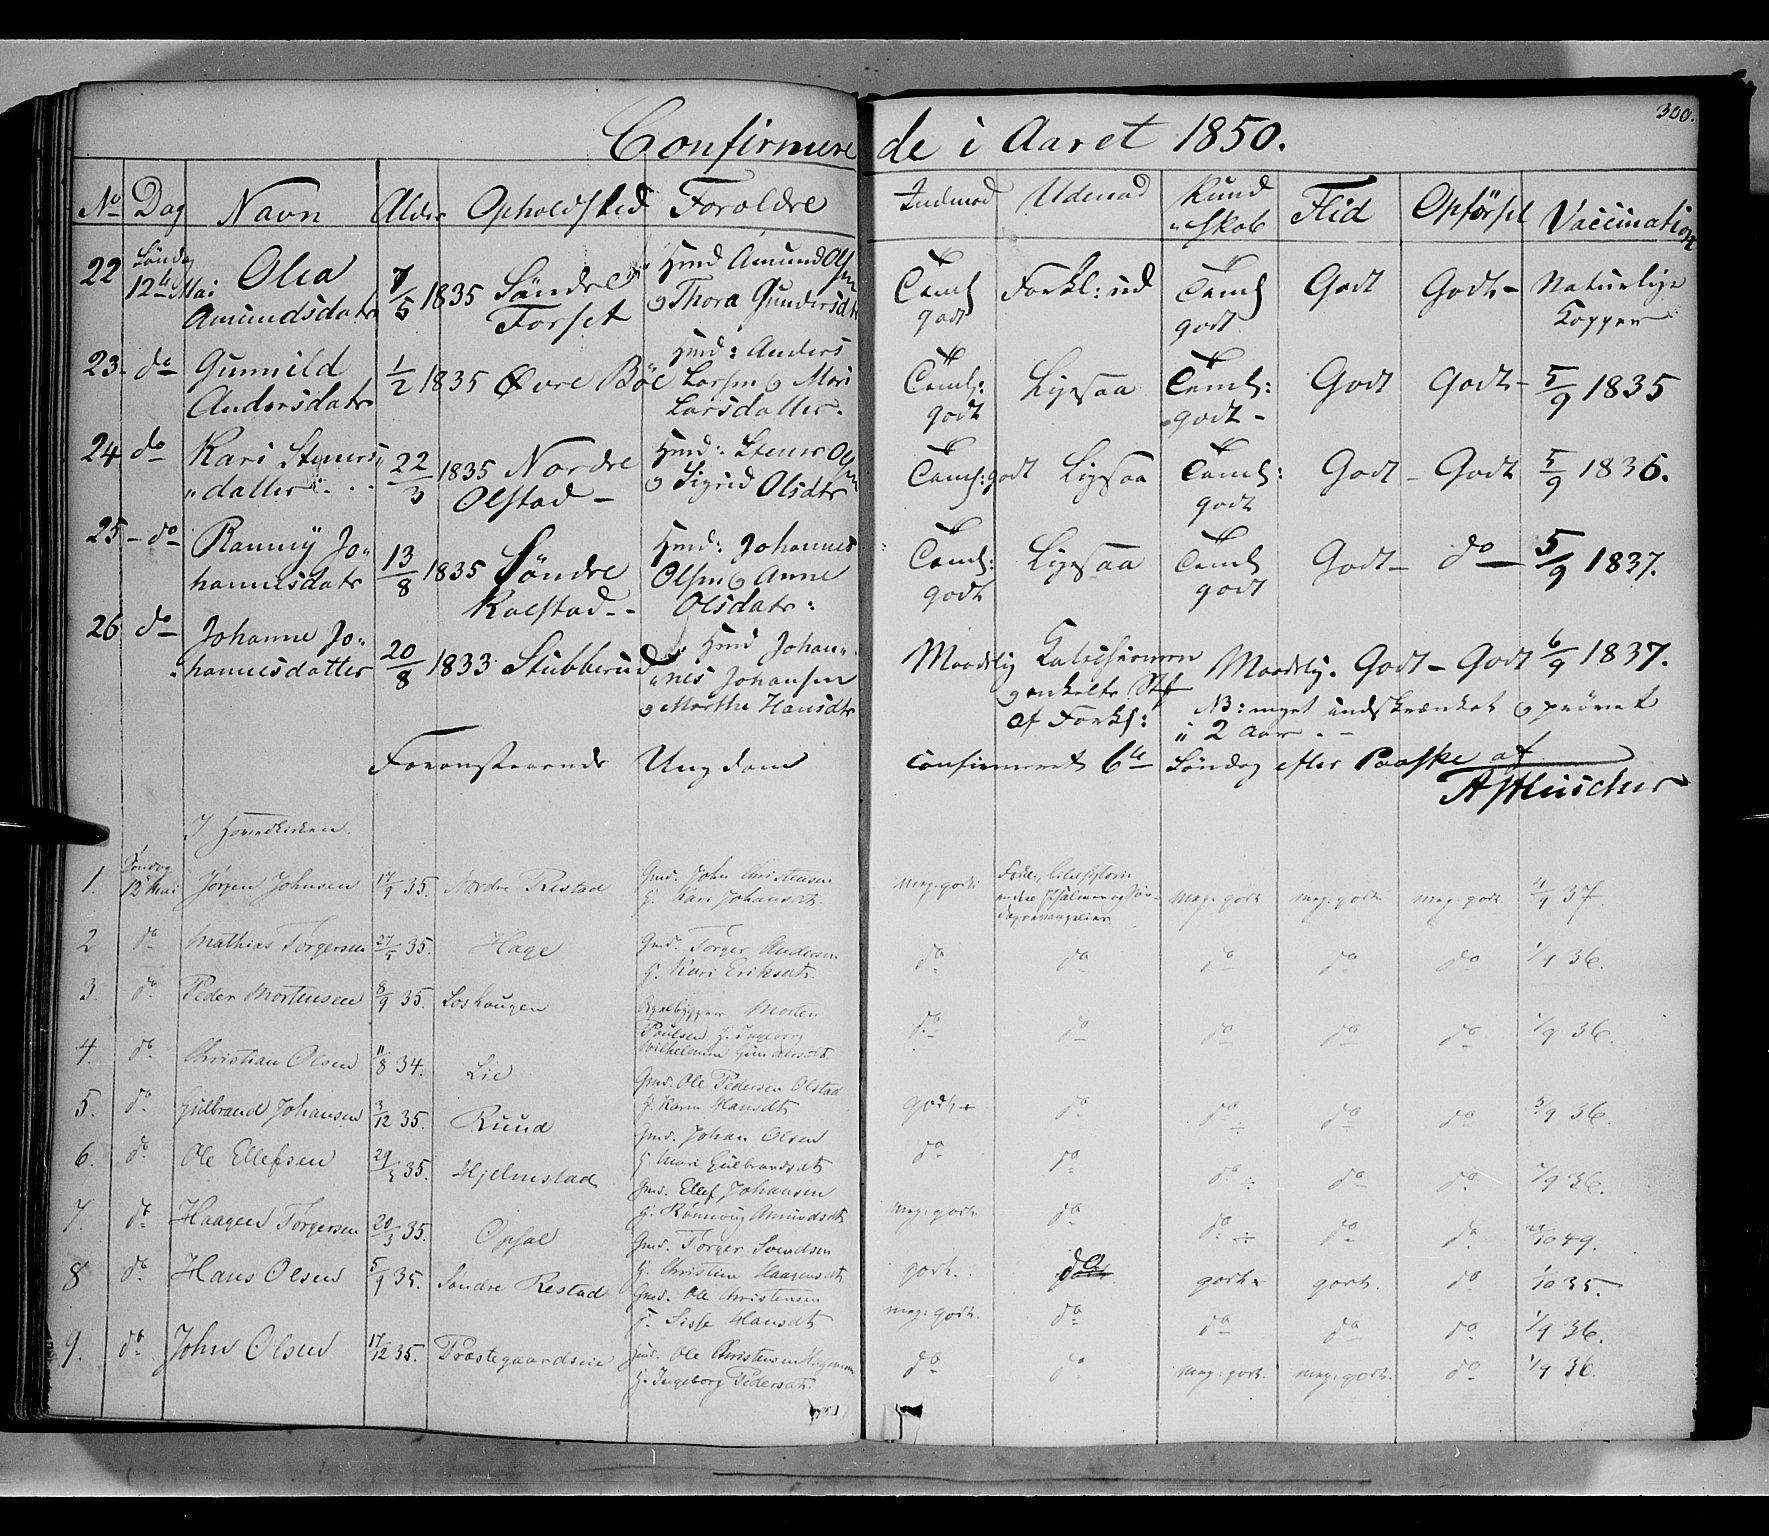 300.
Confirmerede i Aaret 1850.
No Dag Navn Alder Opholdsted Foroldre Indenad Udenad Kundskab Flid Opførsel Vaccination
22 Søndag 12te Mai Olia Amundsdatr 7/5 1835 Søndre Forset Hmd Amund Olsen og Thora Gundersdtr Teml godt Forkl: ud Teml godt Godt Godt- Naturlige Kopper
23- do Gunnild Andersdatr 1/2 1835 Øvre Böe Hmd: Anders Larsen og Mari Larsdatter. Teml: godt Ligesaa Teml: godt- Godt Godt- 5/9 1835
24 do Kari Steners datter . . . 22/3 1835 Nordre Olstad- Hmd: Stener Olsen og Sigrid Olsdtr Teml: godt Ligesaa Teml: godt Godt- Godt 5/9 1836.
25- do Ranny Johannesdatr 13/8 1835 Søndre Kalstad-- Hmd: Johannes Olsen og Anne Olsdatr: Teml: godt Ligesaa Teml godt Godt- do 5/9 1837.
26 do Johanne Johannesdatter 20/8 1833 Stubberud Hmd Johannes Johansen og Marthe Hansdtr Maadelig og enkelte af Forkl: Maadelig. Godt- Godt 6/9 1837.
NB: meget indskrænket og prøvet i 2 Aar.-
Foranstaaende Ungdom confirmeret 6te Søndag efter Paaske af
I Hovedkirken.
1. Søndag 12 Mai Jørgen Johnsen 17/9 35. Nordre Restad Gmd. John Christensen H. Kari Johansdt. meg: godt mag: godt. meg: godt. meg: godt. 37.
2 do Mathias Torgersen 27/ 35. Hage Gmd. Torger Andersen H. Kari Eriksdt. do do do do do 36.
3. do Peder Mortensen 8/9 35. Loshaugen Morten Poulsen H. Ingeborg Wilhelmine Gundersdt. do do do do do 1/9 36.
4. do Christian Olsen 11/8 34. Lie Gmd. Ole Pedersen Olstad H. Karen Hansdt. godt+ do do ÷ do do 5/9 36.
5. do Gulbrand Johansen 3/12 35. Ruud Gmd. Johan Olsen H. Mari Gulbrandsdt. do do do ÷ do do 7/9 36.
6. do Ole Ellefsen 29/ 35. Hjelmstad Gmd. Ellef Johansen H. Rønnoug Amundsdt. meg: godt. do do ÷ do do /10 49.
7. do Haagen Torgersen 20/3 35. Opsal Gmd. Torger Svendsen H. Christine Haagensdt. godt. do godt+ godt. do 1/10 35.
8 do Hans Olsen 5/9 35. Søndre Restad Gmd. Ole Christensen H. Sisse Hansdt. meg: godt. do do do do 36.
9. do John Olsen 17/12 35. Præstegaardseie Ole Christensen H. Ingeborg Pedersdt. do do meg: godt. meg: godt. do 36.